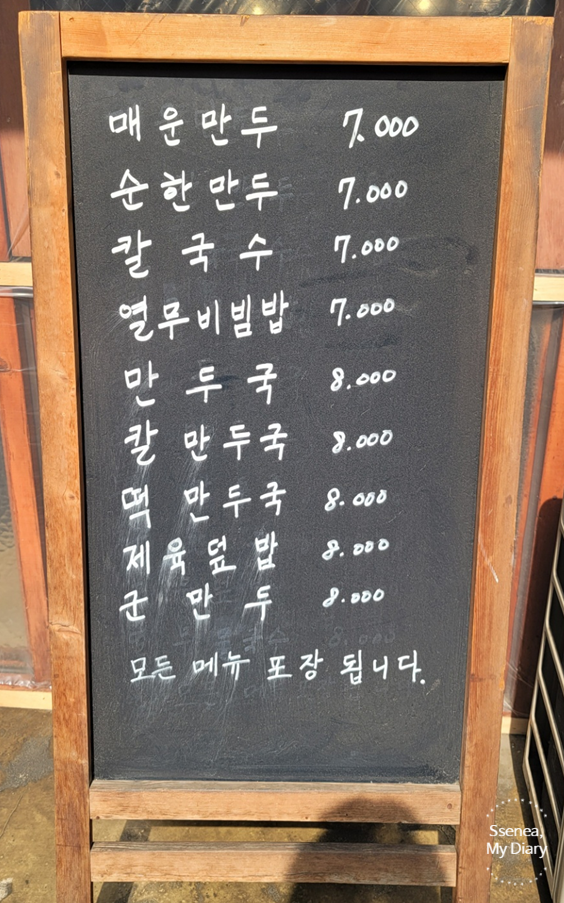 매운만두 7.000
순한만두 7.000
칼국수 7.000
열무비빔밥 7.000
만두국 8.000
칼만두국 8.000
떡만두국 8.000
제육덮밥 8.000
군만두 8.000
모든 메뉴 포장 됩니다.
Ssenea,
My Diary